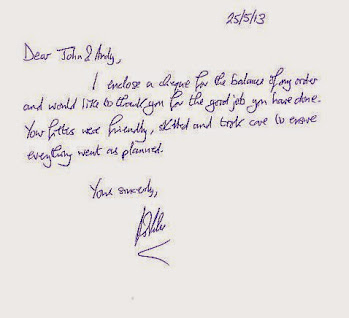 25/5/13
Dear John & Andy,
I enclose a cheque for the balance of my order
and would like to thank you for the good job you have done.
Your fitters were friendly, skilled and took care to ensure
everything went as planned.
Yours sincerely,